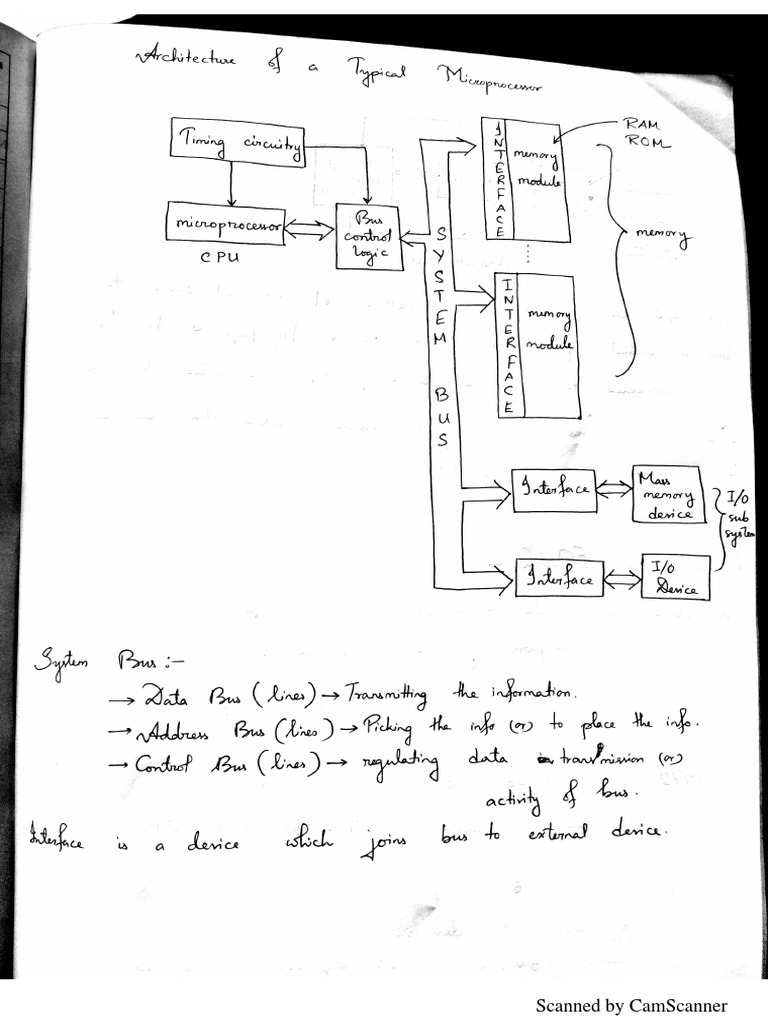 Architecture of a Typical Microprocessor
Timing circuitry
microprocessor
CPU
Bus
control
logic
SYSTEM BUS
INTERFACE
memory
module
RAM
ROM
memory
INTERFACE
memory
module
Interface
Mass
memory
device
I/O
sub
system
Interface
I/O
Device
System Bus :-
→ Data Bus (lines) → Transmitting the information.
→ Address Bus (lines) → Picking the info (or) to place the info.
→ Control Bus (lines) → regulating data transmission (or)
activity of bus.
Interface is a device which joins bus to external device.
Scanned by CamScanner